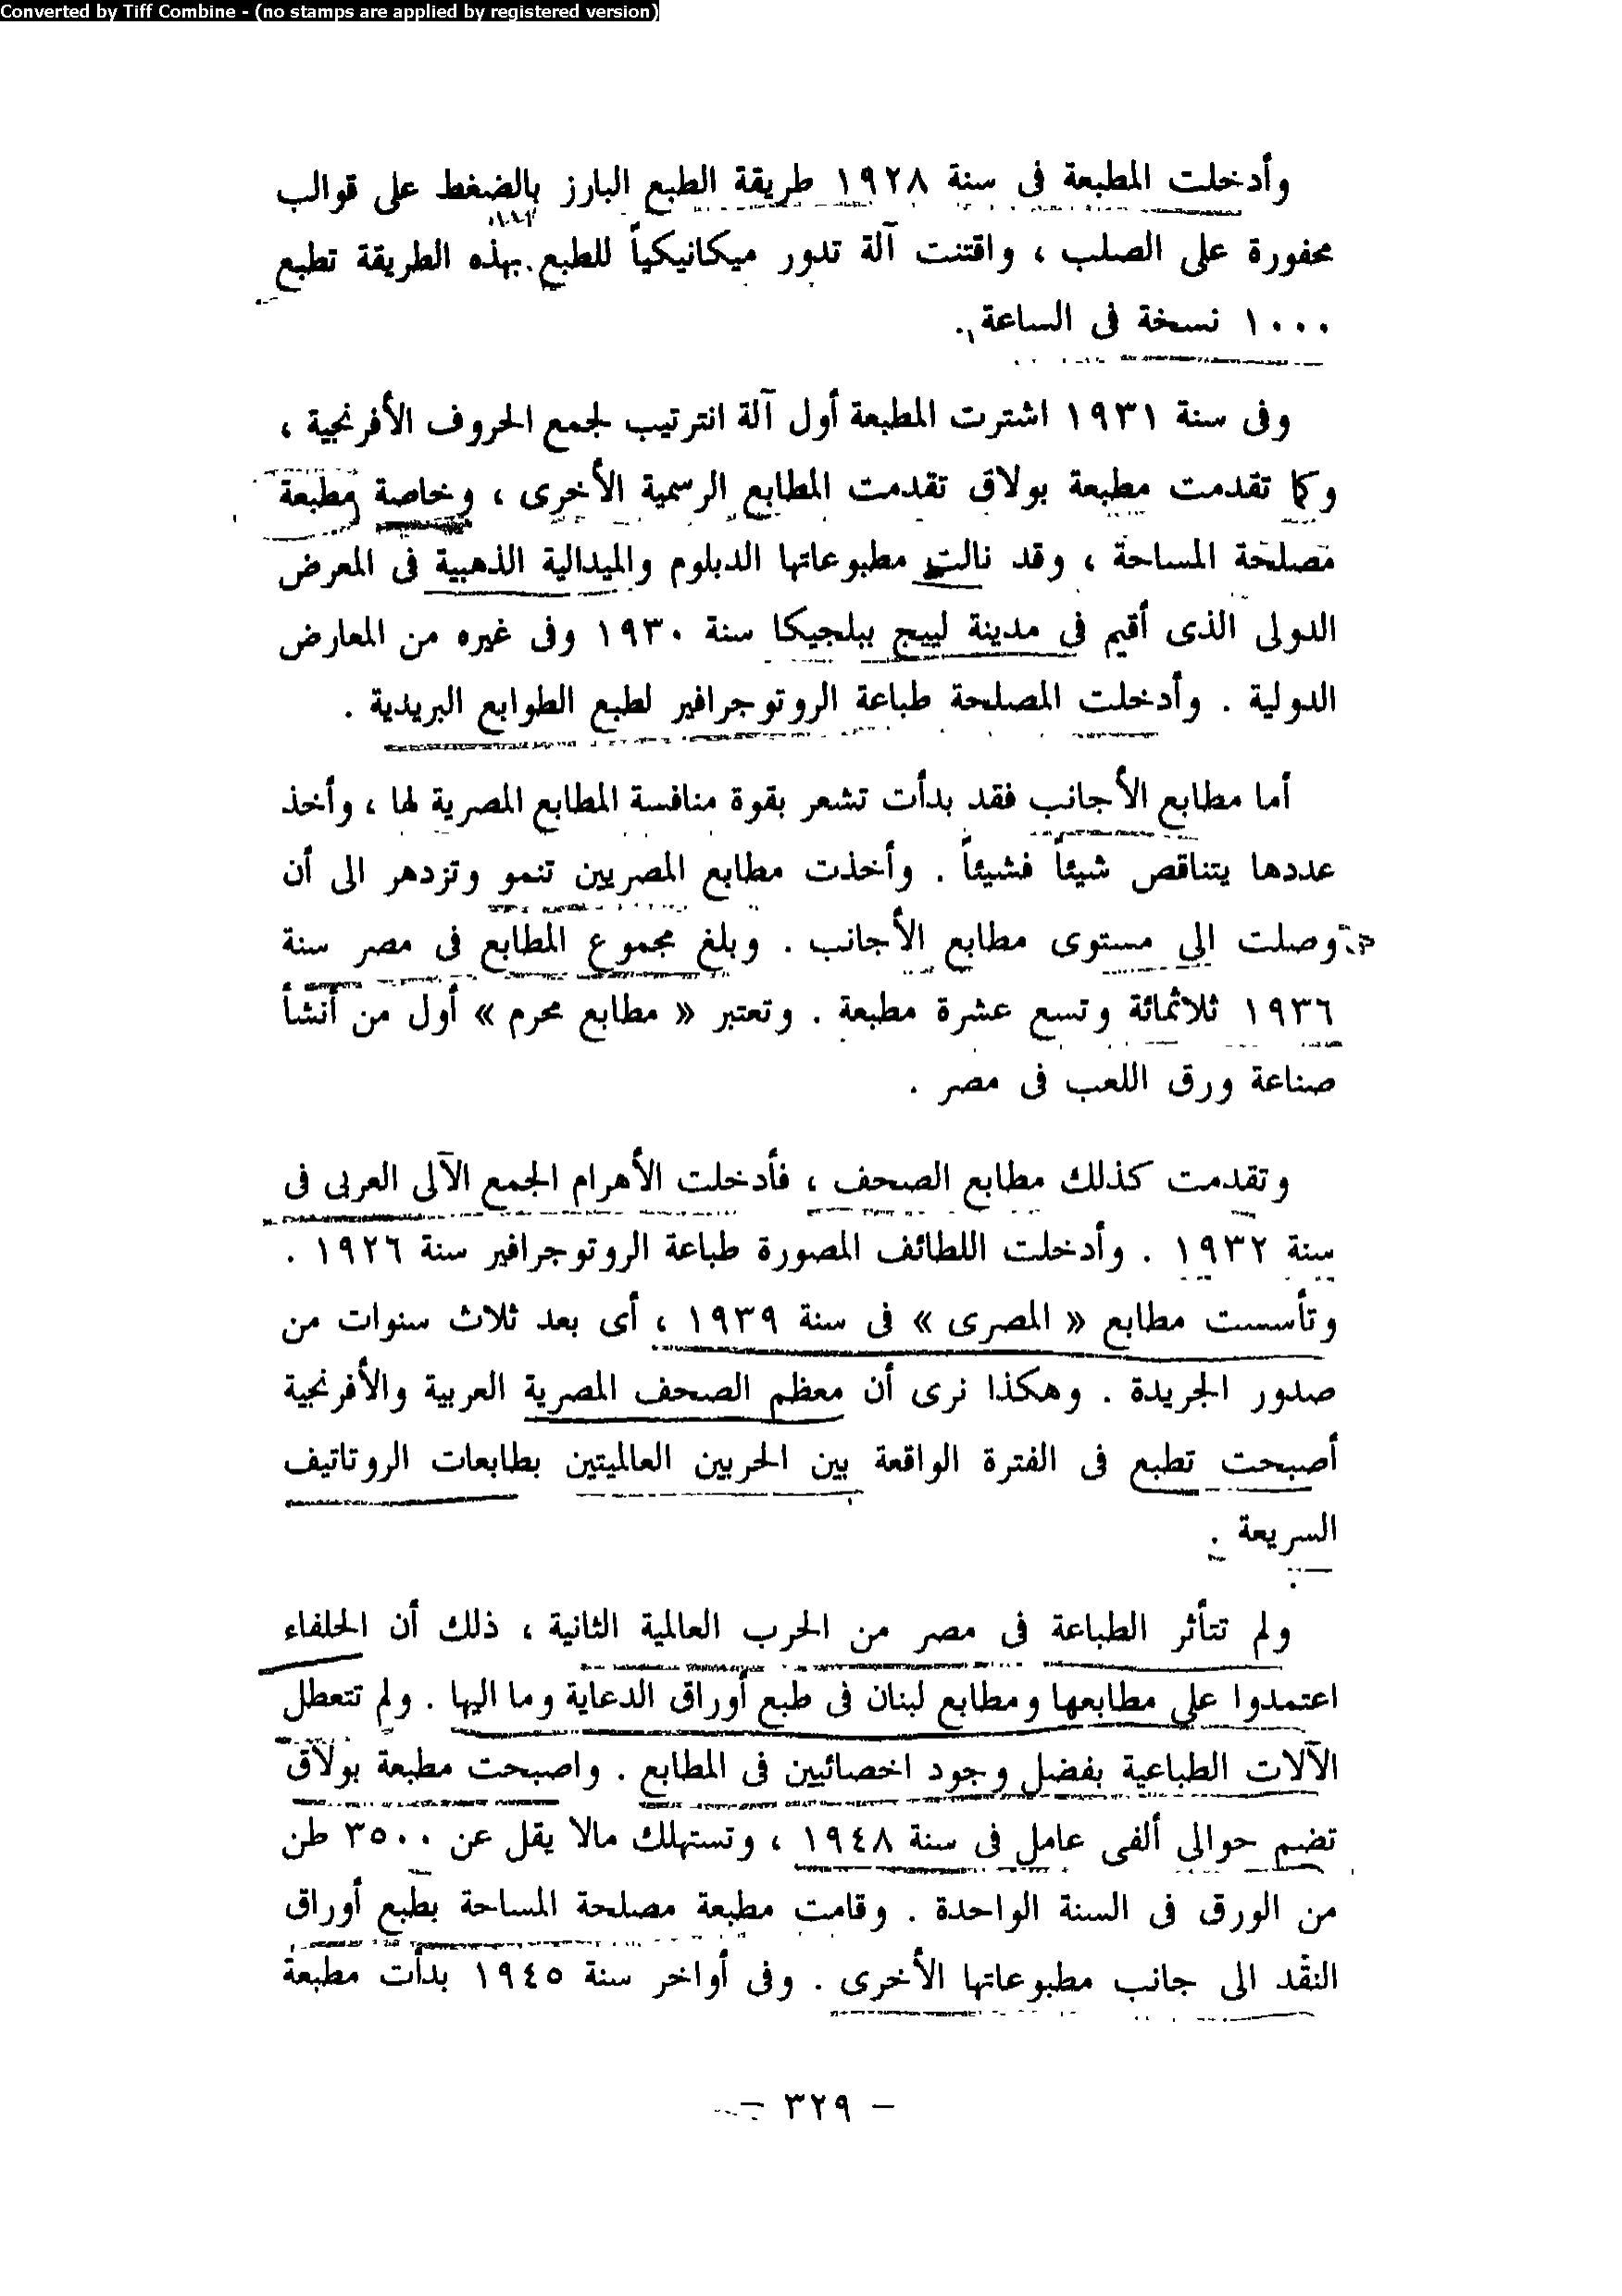 Converted by Tiff Combine - (no stamps are applied by registered version)
وأدخلت المطبعة فى سنة ١٩٢٨ طريقة الطبع البارز بالضغط على قوالب
محفورة على الصلب ، واقتنت آلة تدور ميكانيكياً للطبع بهذه الطريقة تطبع
١٠٠٠ نسخة فى الساعة .
وفى سنة ١٩٣١ اشترت المطبعة أول آلة انترتيب لجمع الحروف الأفرنجية ،
وكما تقدمت مطبعة بولاق تقدمت المطابع الرسمية الأخرى ، وخاصة مطبعة
مصلحة المساحة ، وقد نالت مطبوعاتها الدبلوم والميدالية الذهبية فى المعرض
الدولى الذى أقيم فى مدينة لييج ببلجيكا سنة ١٩٣٠ وفى غيره من المعارض
الدولية . وأدخلت المصلحة طباعة الروتوجرافير لطبع الطوابع البريدية .
أما مطابع الأجانب فقد بدأت تشعر بقوة منافسة المطابع المصرية لها ، وأخذ
عددها يتناقص شيئاً فشيئاً . وأخذت مطابع المصريين تنمو وتزدهر الى أن
وصلت الى مستوى مطابع الأجانب . وبلغ مجموع المطابع فى مصر سنة
١٩٣٦ ثلاثمائة وتسع عشرة مطبعة . وتعتبر « مطابع محرم » أول من أنشأ
صناعة ورق اللعب فى مصر .
وتقدمت كذلك مطابع الصحف ، فأدخلت الأهرام الجمع الآلى العربى فى
سنة ١٩٣٢ . وأدخلت اللطائف المصورة طباعة الروتوجرافير سنة ١٩٢٦ .
وتأسست مطابع « المصرى » فى سنة ١٩٣٩ ، أى بعد ثلاث سنوات من
صدور الجريدة . وهكذا نرى أن معظم الصحف المصرية العربية والأفرنجية
أصبحت تطبع فى الفترة الواقعة بين الحربين العالميتين بطابعات الروتاتيف
السريعة .
ولم تتأثر الطباعة فى مصر من الحرب العالمية الثانية ، ذلك أن الحلفاء
اعتمدوا على مطابعها ومطابع لبنان فى طبع أوراق الدعاية وما اليها . ولم تتعطل
الآلات الطباعية بفضل وجود اخصائيين فى المطابع . واصبحت مطبعة بولاق
تضم حوالى ألفى عامل فى سنة ١٩٤٨ ، وتستهلك مالا يقل عن ٣٥٠٠ طن
من الورق فى السنة الواحدة . وقامت مطبعة مصلحة المساحة بطبع أوراق
النقد الى جانب مطبوعاتها الأخرى . وفى أواخر سنة ١٩٤٥ بدأت مطبعة
— ٣٢٩ —